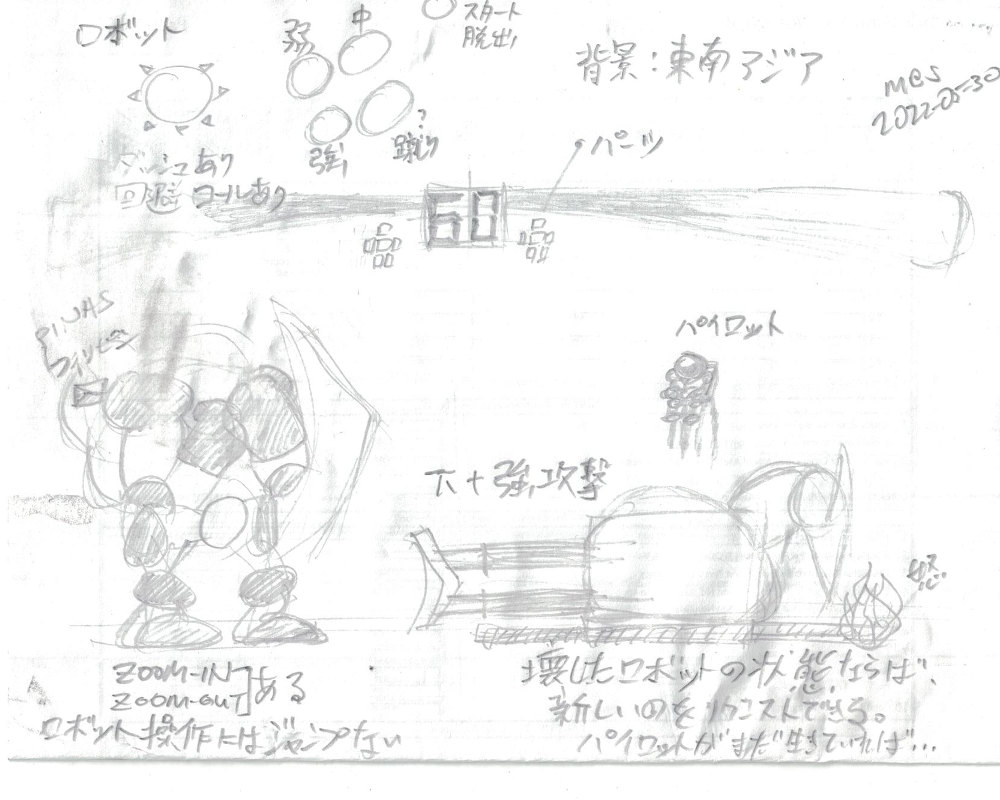 ロボット
弱
中
スタート
脱出
強
?
蹴り
ダッシュあり
回避ロールあり
背景:東南アジア
mes
2022-05-30
パーツ
60
PINAS
フィリピン
パイロット
下+強攻撃
怒
ZOOM-IN
ZOOM-OUT
ある
ロボット操作にはジャンプない
壊したロボットの状態ならば、
新しいのをリクエストできる。
パイロットがまだ生きていれば…